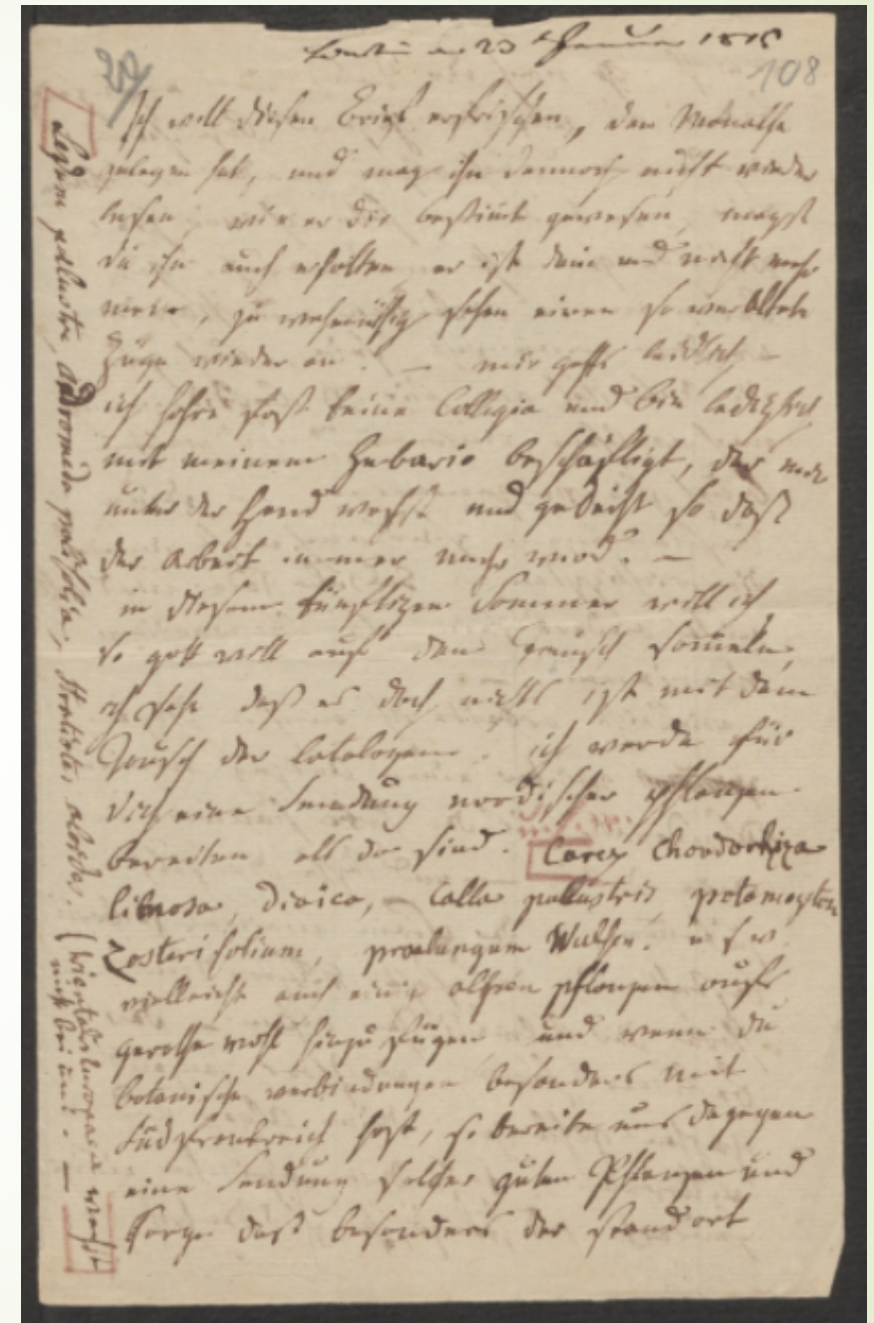 23 Januar 1818
108
27
Ich will diesen Brief erfrischen, der Monathe
gelegen hat, und mag ihn dennoch nicht wieder
lesen, wie er dir bestimt gewesen, magst
du ihn auch erhalten er ist dein und nicht mehr
mein, zu wehmüthig sehen einen so veraltete
Züge wieder an. — mir gehts leidlich —
ich höre fast keine Collegia und bin lediglich
mit meinem Herbario beschäftigt, das mir
unter der Hand wächst und gedeiht so daß
der Arbeit immer mehr wird. —
in diesem künftigen Sommer will ich
so gott will auf den Tausch sammeln,
ich sehe daß es doch nichts ist mit dem
Tausch der Catalogen. ich werde für
dich eine Sendung nordischer Pflanzen
bereiten als da sind. Carex Chordorhiza
limosa, Dioica, — Calla pallustris, potamogeton
Zosterifolium, praelongum Wulfen. u s w.
vielleicht auch einige alpen pflanzen aufs
gerathe wohl hinzu fügen und wenn du
botanische verbindungen besonders mit
Südfrankreich hast, so bereite uns dagegen
eine Sendung solcher guten Pflanzen und
sorge daß besonders der standort
Ledum pallustre, Andromeda polifolia, Stratiotes aloides.
(trientalis Europaea wächst
nicht bei uns. —